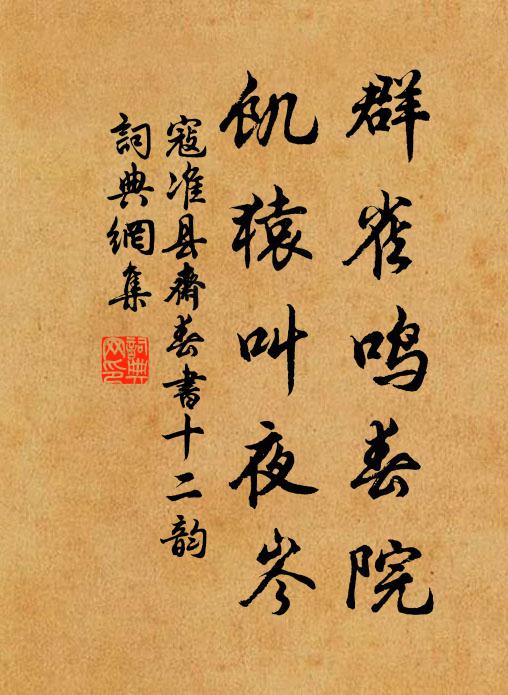 群雀鸣春院
飢猿叫夜岑
寇准县斋春书十二韵
詞典網集
詞典
网印